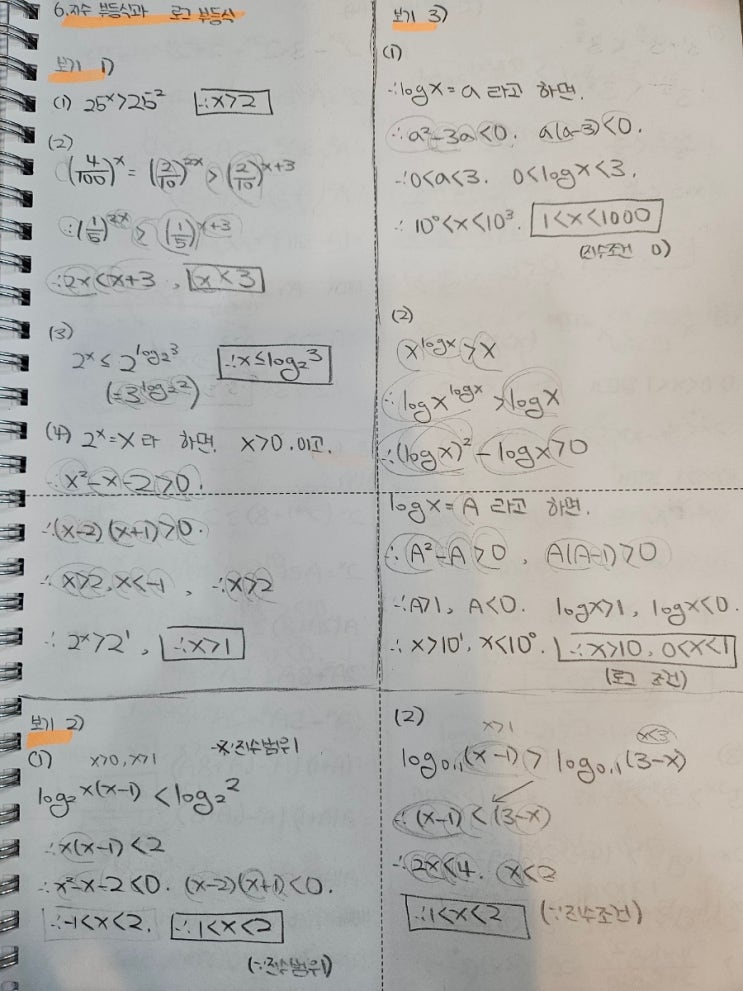 6. 지수 부등식과 로그 부등식
보기 1)
(1) 25^x>25^2 ∴x>2
(2)
(4/100)^x = (2/10)^2x > (2/10)^x+3
∴(1/5)^2x > (1/5)^x+3
∴2x<x+3, x<3
(3)
2^x ≤ 2^log₂3 ∴x≤log₂3
(=3^log₂2)
(4) 2^x=X라 하면, X>0.이고.
∴X²-X-2>0.
∴(X-2)(X+1)>0.
∴X>2, X<-1, ∴X>2
∴2^x>2^1, ∴x>1
보기 2)
(1) x>0, x>1 ※진수범위
log₂x(x-1) < log₂2
∴x(x-1)<2
∴x²-x-2<0. (x-2)(x+1)<0.
∴-1<x<2. ∴1<x<2
(∵진수범위)
보기 3)
(1)
∴logx=a 라고 하면.
∴a²-3a<0. a(a-3)<0.
∴0<a<3. 0<logx<3.
∴10^0<x<10^3. 1<x<1000
(진수조건 0)
(2)
x^logx>x
∴logx^logx>logx
∴(logx)²-logx>0
logx=A 라고 하면.
∴A²-A>0, A(A-1)>0
∴A>1, A<0. logx>1, logx<0.
∴x>10^1, x<10^0. ∴x>10, 0<x<1
(로그 조건)
(2)
x>1 x<3
log₀.₁(x-1) > log₀.₁(3-x)
∴(x-1)<(3-x)
∴2x<4. x<2
∴1<x<2 (∵진수조건)